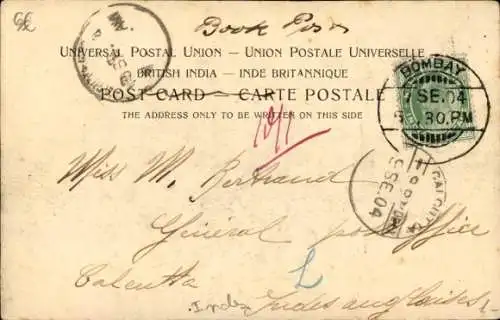 Book Post
UNIVERSAL POSTAL UNION – UNION POSTALE UNIVERSELLE
BRITISH INDIA – INDE BRITANNIQUE
POST-CARD – CARTE POSTALE
THE ADDRESS ONLY TO BE WRITTEN ON THIS SIDE
BOMBAY
SE.04
30.PM
CALCUTTA
SE 04
Miss M. Bertrand
Général post office
Calcutta
Indes anglaises